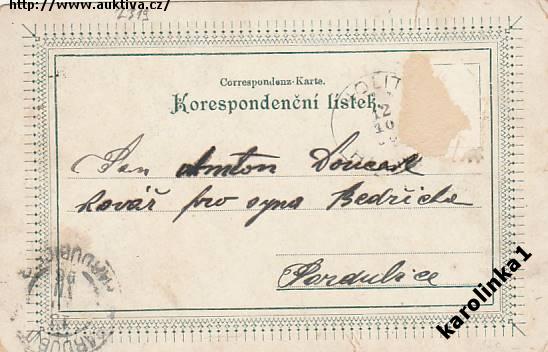 http://www.auktiva.cz/
Correspondenz-Karte.
Korespondenční lístek.
HOLIT
12
10
Pan Anton Doucek
kovář pro syna Bedřicha
Pardubice
PARDUBICE
PARDUB
karolinka1